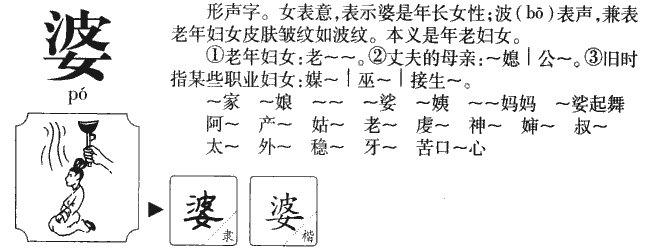 婆
pó
形声字。女表意,表示婆是年长女性;波(bō)表声,兼表
老年妇女皮肤皱纹如波纹。本义是年老妇女。
①老年妇女:老~~。②丈夫的母亲:~媳|公~。③旧时
指某些职业妇女:媒~|巫~|接生~。
~家 ~娘 ~~ ~娑 ~姨 ~~妈妈 ~娑起舞
阿~ 产~ 姑~ 老~ 虔~ 神~ 婶~ 叔~
太~ 外~ 稳~ 牙~ 苦口~心
婆 隶
婆 楷